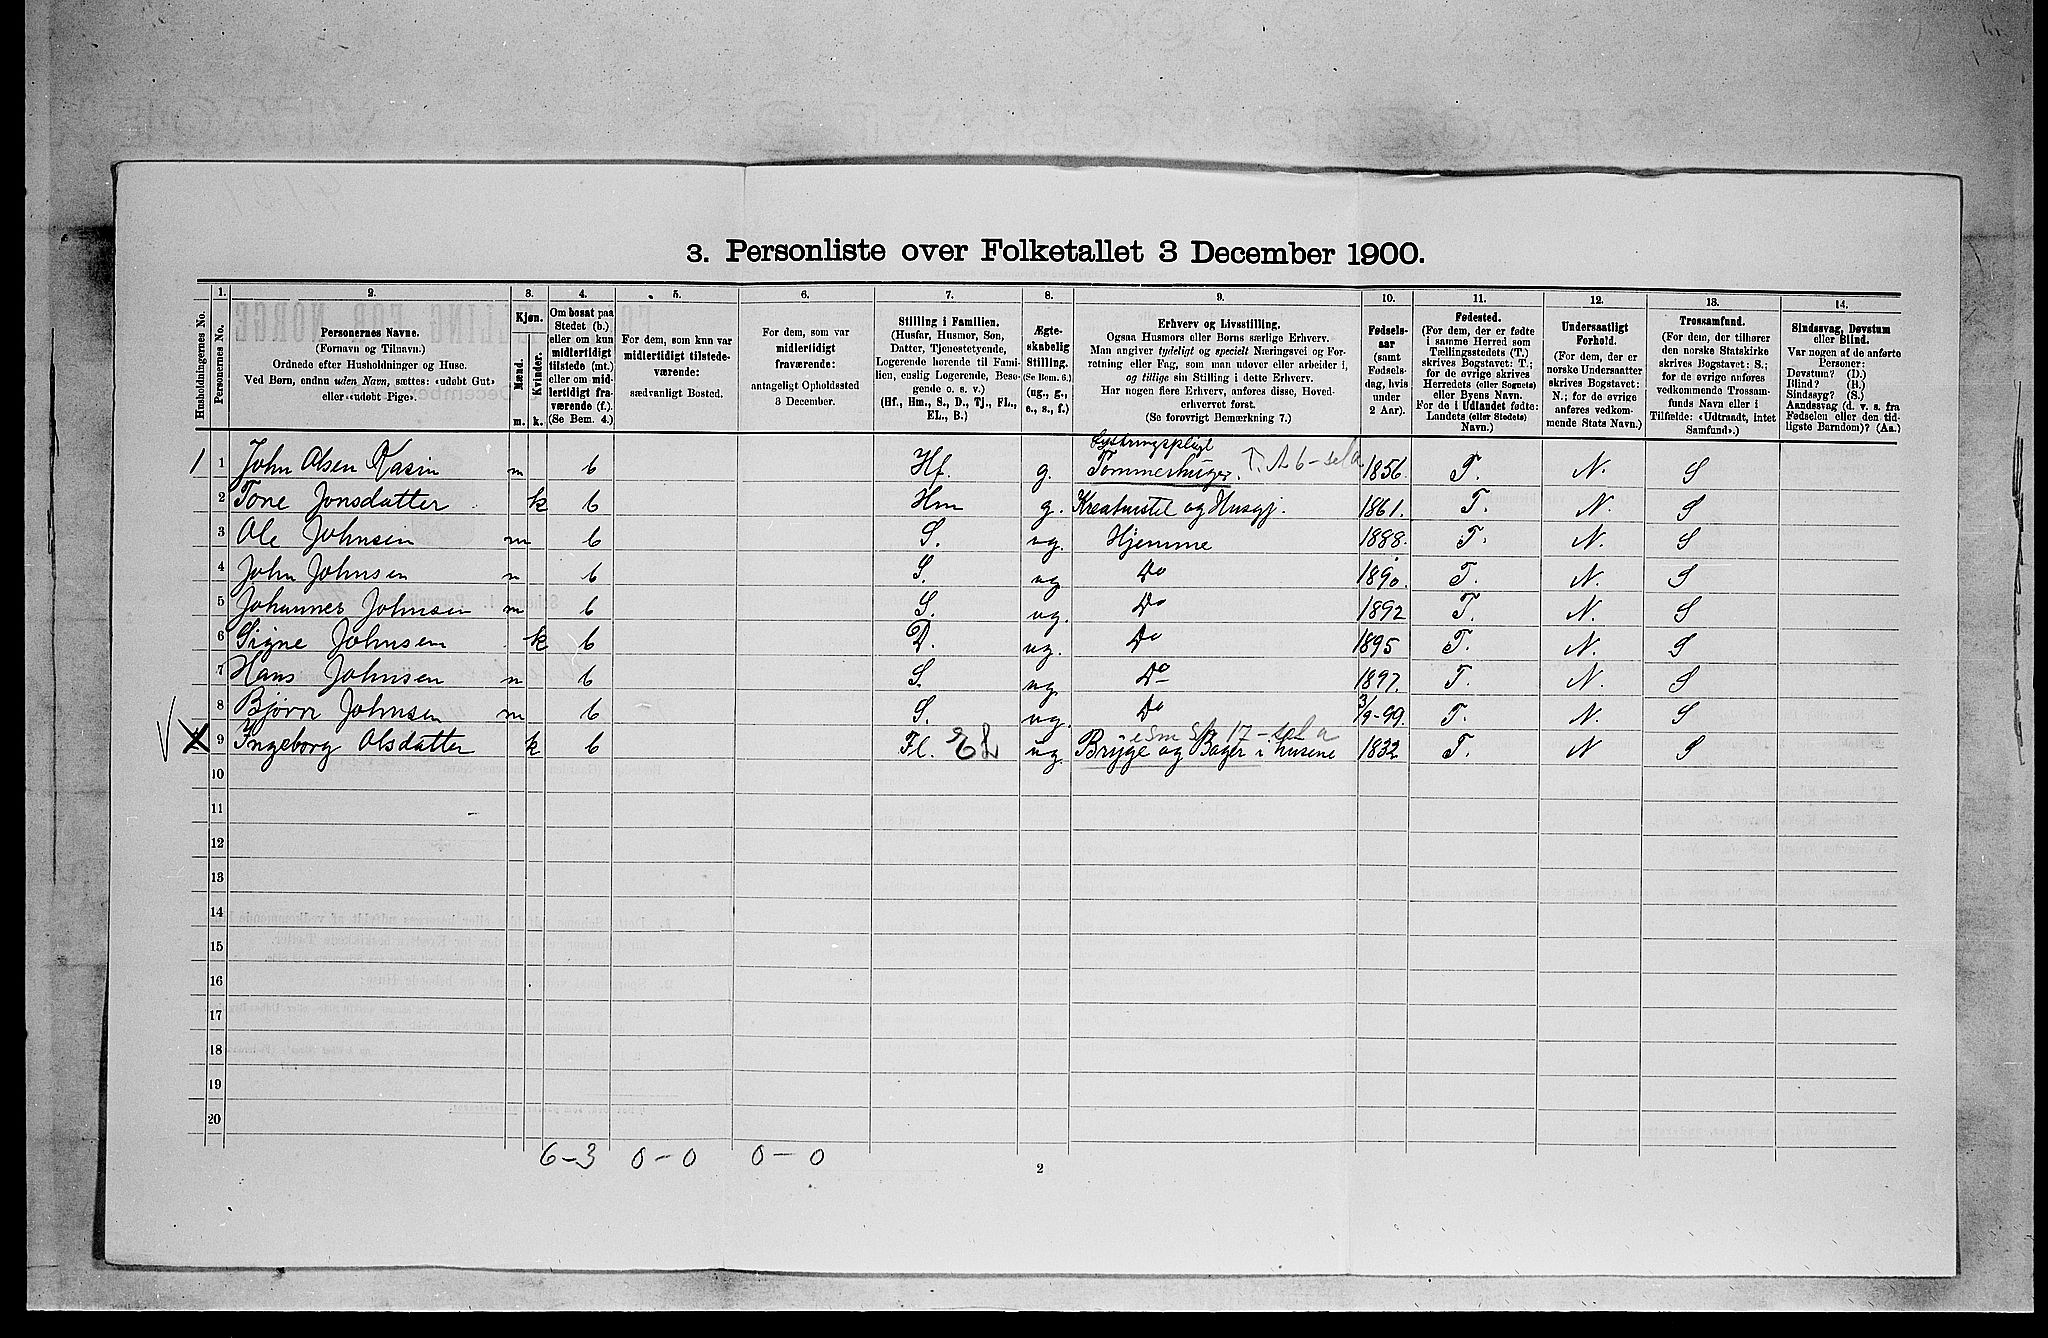 3. Personliste over Folketallet 3 December 1900.
1. 2. 3. 4. 5. 6. 7. 8. 9. 10. 11. 12. 13. 14.
Husholdningernes No.
Personernes No.
Personernes Navne.
(Fornavn og Tilnavn.)
Ordnede efter Husholdninger og Huse.
Ved Børn, endnu uden Navn, sættes: «udøbt Gut»
eller «udøbt Pige».
Kjøn.
Mænd.
Kvinder.
m. k.
Om bosat paa
Stedet (b.)
eller om kun
midlertidigt
tilstede (mt.)
eller om mid-
lertidigt fra-
værende (f.)
(Se Bem. 4.)
For dem, som kun var
midlertidigt tilstede-
værende:
sædvanligt Bosted.
For dem, som var
midlertidigt
fraværende:
antageligt Opholdssted
3 December.
Stilling i Familien.
(Husfar, Husmor, Søn,
Datter, Tjenestetyende,
Logerende hørende til Fami-
lien, enslig Logerende, Besø-
gende o. s. v.)
(Hf., Hm., S., D., Tj., FL.,
EL., B.)
Ægte-
skabelig
Stilling.
(Se Bem. 6.)
(ug., g.,
e., s., f.)
Erhverv og Livsstilling.
Ogsaa Husmors eller Børns særlige Erhverv.
Man angiver tydeligt og specielt Næringsvei og For-
retning eller Fag, som man udøver eller arbeider i,
og tillige sin Stilling i dette Erhverv.
Har nogen flere Erhverv, anføres disse, Hoved-
erhvervet først.
(Se forøvrigt Bemærkning 7.)
Fødsels-
aar
(samt
Fødsels-
dag, hvis
under
2 Aar).
Fødested.
(For dem, der er fødte
i samme Herred som
Tællingsstedets (T.)
skrives Bogstavet: T.;
for de øvrige skrives
Herredets (eller Sognets)
eller Byens Navn.
For de i Udlandet fødte:
Landets (eller Stedets)
Navn.)
Undersaatligt
Forhold.
(For dem, der er
norske Undersaatter
skrives Bogstavet:
N.; for de øvrige
anføres vedkom-
mende Stats Navn.)
Trossamfund.
(For dem, der tilhører
den norske Statskirke
skrives Bogstavet: S.;
for de øvrige anføres
vedkommende Trossam-
funds Navn eller i
Tilfælde: «Udtraadt, intet
Samfund».)
Sindssvag, Døvstum
eller Blind.
Var nogen af de anførte
Personer:
Døvstum? (D.)
Blind? (B.)
Sindssyg? (S.)
Aandssvag (d. v. s. fra
Fødselen eller den tid-
ligste Barndom)? (Aa.)
1 1 John Olsen Kasin m b Hf. g. Tømmerhuger. 1856. T. N. S
2 Tone Jonsdatter k b Hm g. Kreaturstel og Husgj. 1861. T. N. S
3 Ole Johnsen m b S. ug. Hjemme 1888. T. N. S
4 John Johnsen m b S. ug Do 1890. T. N. S
5 Johannes Johnsen m b S. ug. Do 1892 T. N. S
6 Signe Johnsen k b D. ug. Do 1895 T. N. S
7 Hans Johnsen m b S. ug Do 1897. T. N. S
8 Bjørn Johnsen m b S. ug. Do 3/9-99. T. N. S
9 Ingeborg Olsdatter k b Fl. EL ug. Brygge og Bager i husene 1832 T. N S
10
11
12
13
14
15
16
17
18
19
20
6-3 0-0 0-0
2